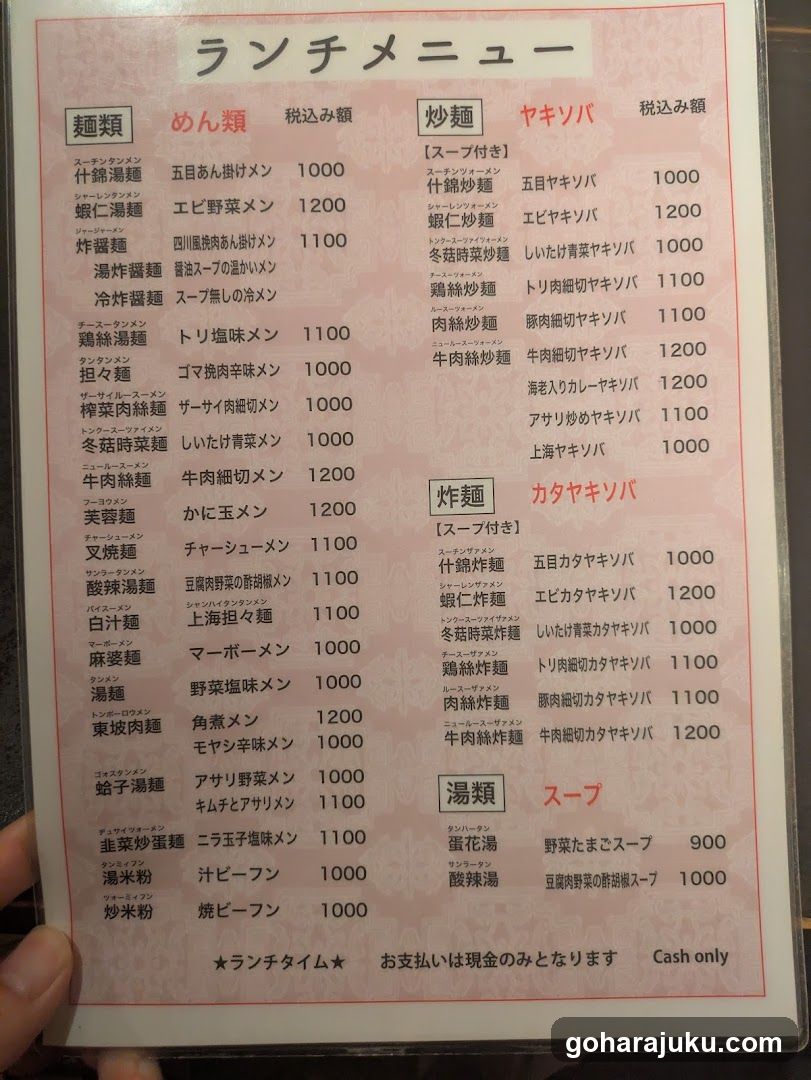 ランチメニュー
麺類 めん類 税込み額
スーチンタンメン
什錦湯麺 五目あん掛けメン 1000
シャーレンタンメン
蝦仁湯麺 エビ野菜メン 1200
ジャージャーメン
炸醤麺 四川風挽肉あん掛けメン 1100
湯炸醤麺 醤油スープの温かいメン
冷炸醤麺 スープ無しの冷メン
チースータンメン
鶏絲湯麺 トリ塩味メン 1100
タンタンメン
担々麺 ゴマ挽肉辛味メン 1000
ザーサイルースーメン
榨菜肉絲麺 ザーサイ肉細切メン 1000
トンクースーツァイメン
冬菇時菜麺 しいたけ青菜メン 1000
ニュールースーメン
牛肉絲麺 牛肉細切メン 1200
フーヨウメン
芙蓉麺 かに玉メン 1200
チャーシューメン
叉焼麺 チャーシューメン 1100
サンラータンメン
酸辣湯麺 豆腐肉野菜の酢胡椒メン 1100
パイスーメン シャンハイタンタンメン
白汁麺 上海担々麺 1100
マーボーメン
麻婆麺 マーボーメン 1000
タンメン
湯麺 野菜塩味メン 1000
トンポーロウメン
東坡肉麺 角煮メン 1200
モヤシ辛味メン 1000
ゴォスタンメン
蛤子湯麺 アサリ野菜メン 1000
キムチとアサリメン 1100
デュサイツォーメン
韭菜炒蛋麺 ニラ玉子塩味メン 1100
タンミィフン
湯米粉 汁ビーフン 1000
ツォーミィフン
炒米粉 焼ビーフン 1000
炒麺 ヤキソバ 税込み額
【スープ付き】
スーチンツォーメン
什錦炒麺 五目ヤキソバ 1000
シャーレンツォーメン
蝦仁炒麺 エビヤキソバ 1200
トンクースーツァイツォーメン
冬菇時菜炒麺 しいたけ青菜ヤキソバ 1000
チースーツォーメン
鶏絲炒麺 トリ肉細切ヤキソバ 1100
ルースーツォーメン
肉絲炒麺 豚肉細切ヤキソバ 1100
ニュールースーツォーメン
牛肉絲炒麺 牛肉細切ヤキソバ 1200
海老入りカレーヤキソバ 1200
アサリ炒めヤキソバ 1100
上海ヤキソバ 1000
炸麺 カタヤキソバ
【スープ付き】
スーチンザァメン
什錦炸麺 五目カタヤキソバ 1000
シャーレンザァメン
蝦仁炸麺 エビカタヤキソバ 1200
トンクースーツァイザァメン
冬菇時菜炸麺 しいたけ青菜カタヤキソバ 1000
チースーザァメン
鶏絲炸麺 トリ肉細切カタヤキソバ 1100
ルースーザァメン
肉絲炸麺 豚肉細切カタヤキソバ 1100
ニュールースーザァメン
牛肉絲炸麺 牛肉細切カタヤキソバ 1200
湯類 スープ
タンハータン
蛋花湯 野菜たまごスープ 900
サンラータン
酸辣湯 豆腐肉野菜の酢胡椒スープ 1000
★ランチタイム★ お支払いは現金のみとなります Cash only
goharajuku.com